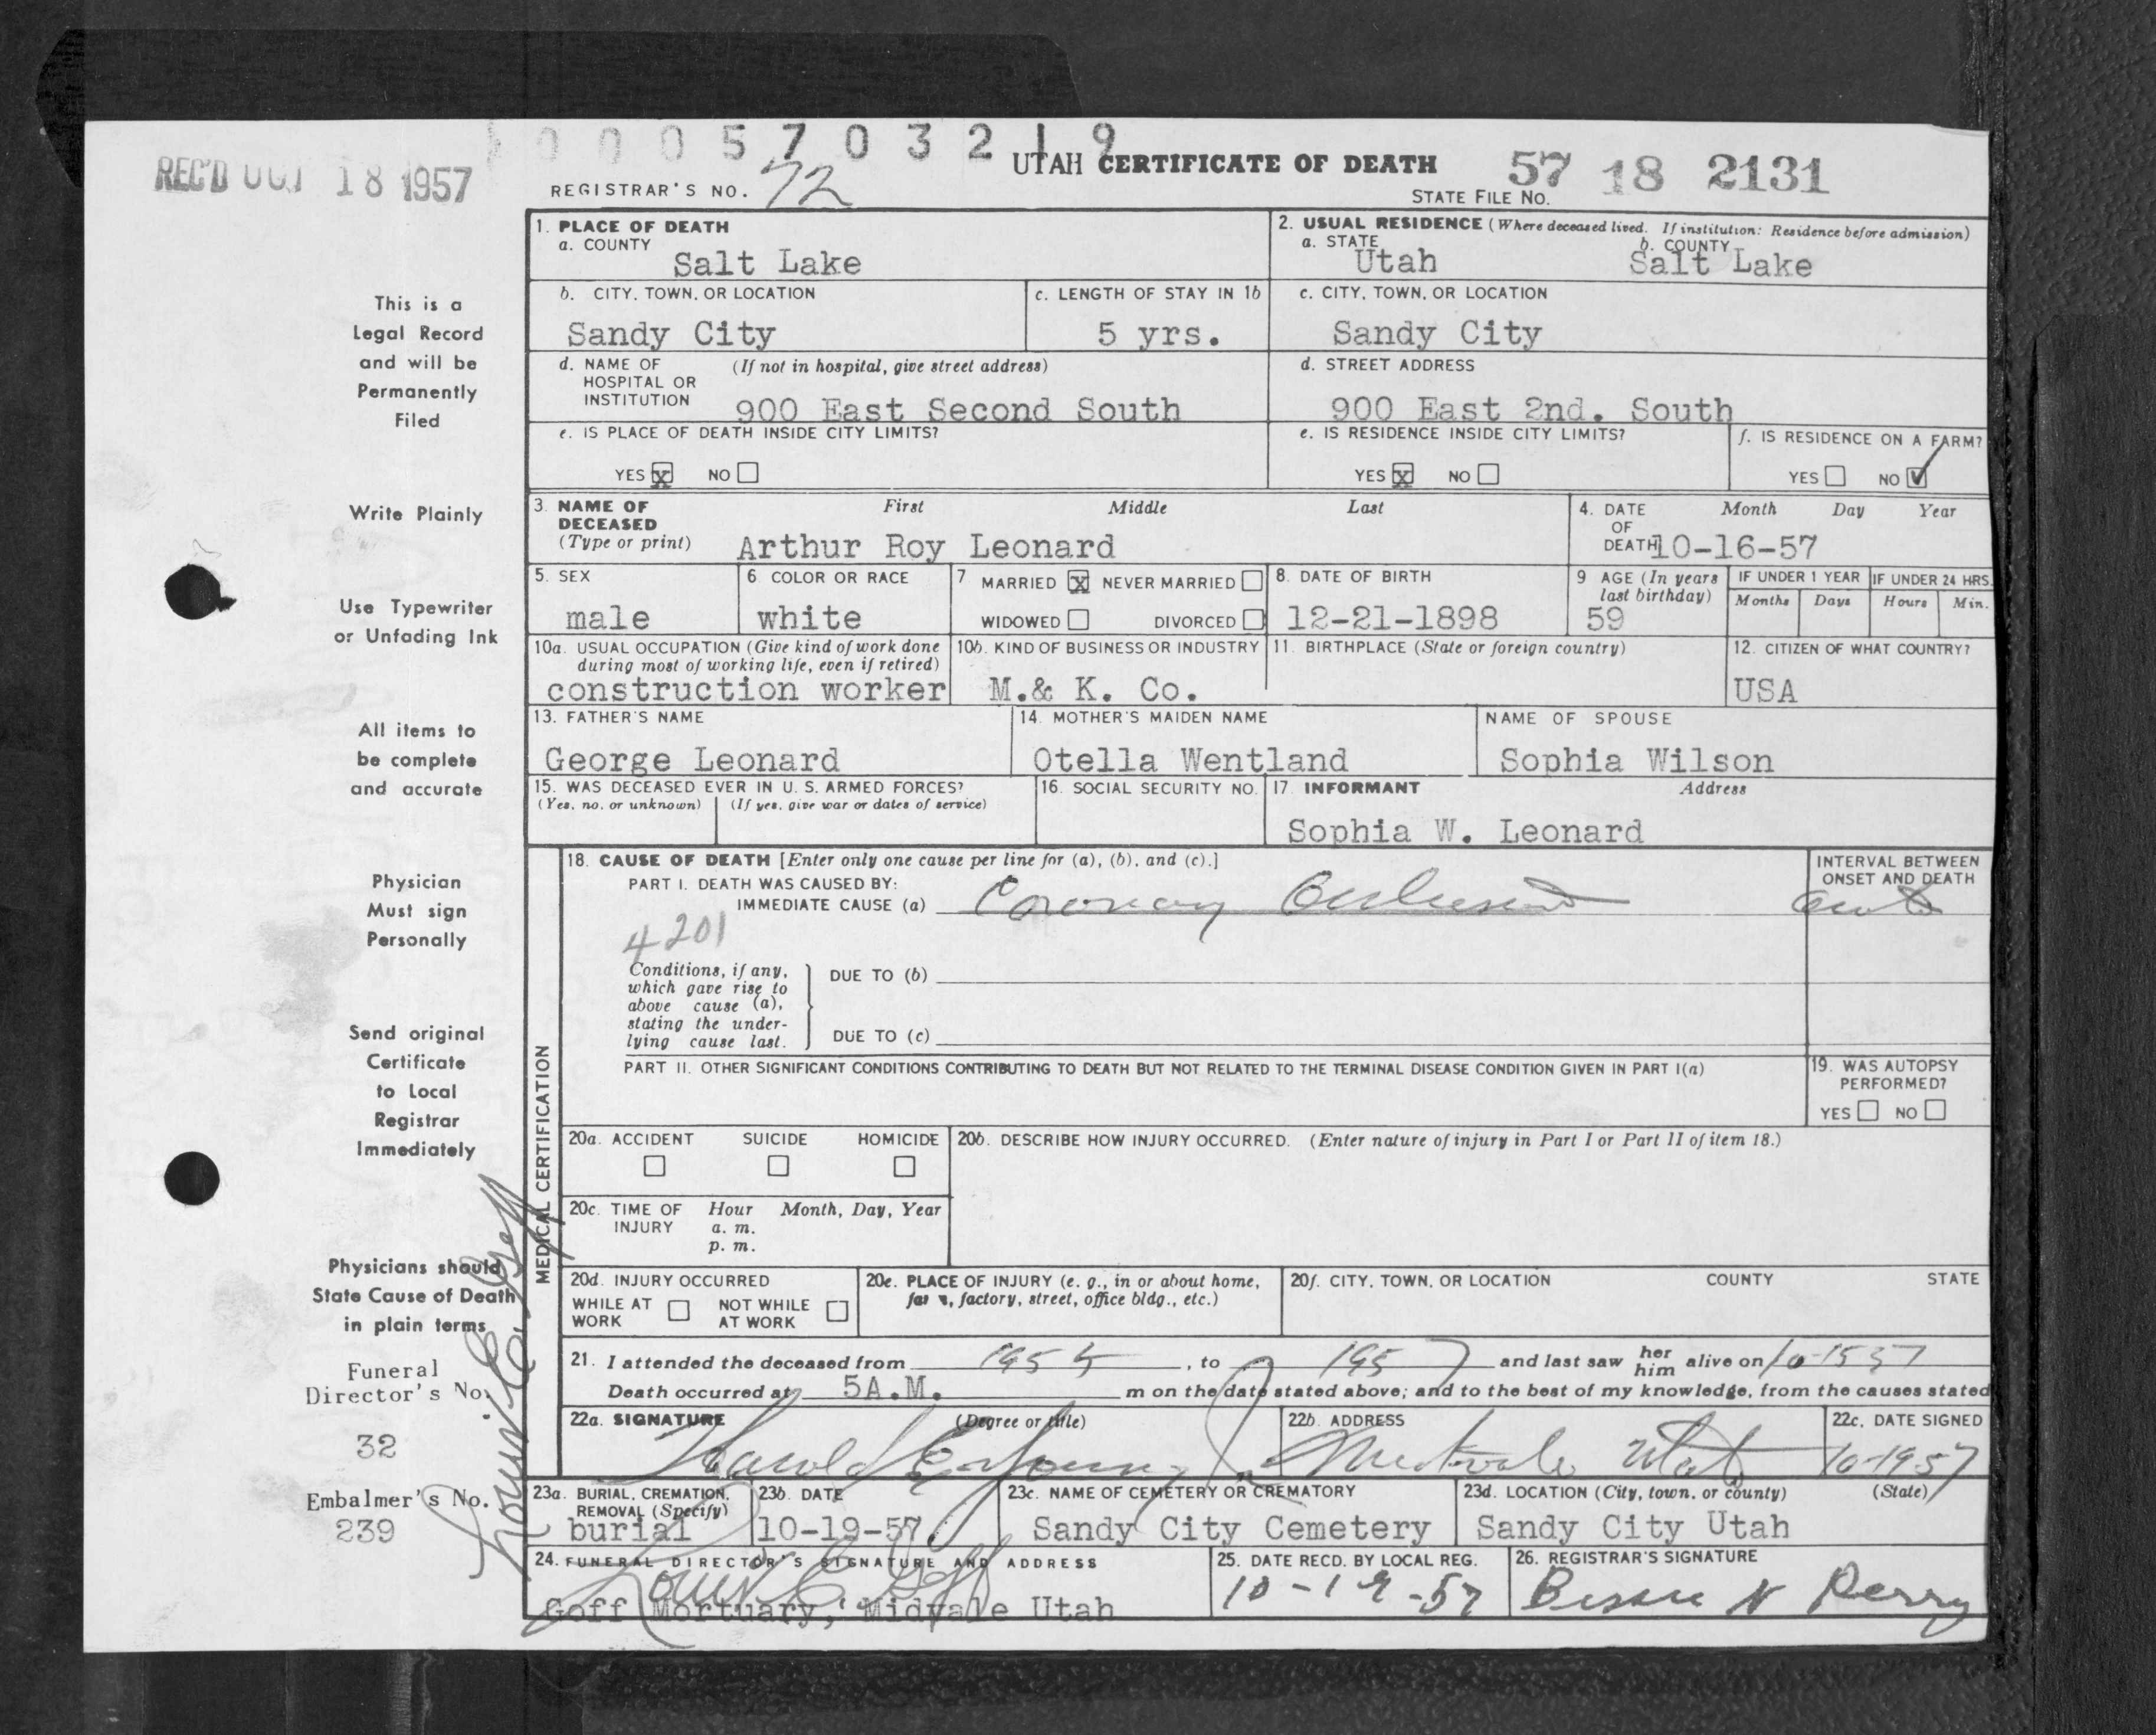 0 0 0 5 7 0 3 2 1 9
REC'D OCT 18 1957
REGISTRAR'S NO. 72
UTAH CERTIFICATE OF DEATH
57 18 2131
STATE FILE NO.
1. PLACE OF DEATH
a. COUNTY
Salt Lake
2. USUAL RESIDENCE (Where deceased lived. If institution: Residence before admission)
a. STATE b. COUNTY
Utah Salt Lake
b. CITY, TOWN, OR LOCATION
Sandy City
c. LENGTH OF STAY IN 1b
5 yrs.
c. CITY, TOWN, OR LOCATION
Sandy City
d. NAME OF (If not in hospital, give street address)
HOSPITAL OR
INSTITUTION 900 East Second South
d. STREET ADDRESS
900 East 2nd. South
e. IS PLACE OF DEATH INSIDE CITY LIMITS?
YES X NO
e. IS RESIDENCE INSIDE CITY LIMITS?
YES X NO
f. IS RESIDENCE ON A FARM?
YES NO ✓
3. NAME OF First Middle Last
DECEASED
(Type or print) Arthur Roy Leonard
4. DATE Month Day Year
OF
DEATH 10-16-57
5. SEX
male
6. COLOR OR RACE
white
7 MARRIED X NEVER MARRIED
WIDOWED DIVORCED
8. DATE OF BIRTH
12-21-1898
9 AGE (In years
last birthday)
59
IF UNDER 1 YEAR IF UNDER 24 HRS.
Months Days Hours Min.
10a. USUAL OCCUPATION (Give kind of work done
during most of working life, even if retired)
construction worker
10b. KIND OF BUSINESS OR INDUSTRY
M.& K. Co.
11. BIRTHPLACE (State or foreign country)
12. CITIZEN OF WHAT COUNTRY?
USA
13. FATHER'S NAME
George Leonard
14. MOTHER'S MAIDEN NAME
Otella Wentland
NAME OF SPOUSE
Sophia Wilson
15. WAS DECEASED EVER IN U. S. ARMED FORCES?
(Yes, no, or unknown) (If yes, give war or dates of service)
16. SOCIAL SECURITY NO.
17. INFORMANT Address
Sophia W. Leonard
MEDICAL CERTIFICATION
18. CAUSE OF DEATH [Enter only one cause per line for (a), (b), and (c).]
PART I. DEATH WAS CAUSED BY:
IMMEDIATE CAUSE (a) Coronary
INTERVAL BETWEEN
ONSET AND DEATH
4201
Conditions, if any,
which gave rise to
above cause (a),
stating the under-
lying cause last.
DUE TO (b)
DUE TO (c)
PART II. OTHER SIGNIFICANT CONDITIONS CONTRIBUTING TO DEATH BUT NOT RELATED TO THE TERMINAL DISEASE CONDITION GIVEN IN PART I(a)
19. WAS AUTOPSY
PERFORMED?
YES NO
20a. ACCIDENT SUICIDE HOMICIDE
20b. DESCRIBE HOW INJURY OCCURRED. (Enter nature of injury in Part I or Part II of item 18.)
20c. TIME OF Hour Month, Day, Year
INJURY a. m.
p. m.
20d. INJURY OCCURRED
WHILE AT NOT WHILE
WORK AT WORK
20e. PLACE OF INJURY (e. g., in or about home,
farm, factory, street, office bldg., etc.)
20f. CITY, TOWN, OR LOCATION COUNTY STATE
21. I attended the deceased from , to 1957 and last saw her him alive on 10-15 57
Death occurred at 5A.M. m on the date stated above; and to the best of my knowledge, from the causes stated
22a. SIGNATURE (Degree or title)
Harold
22b. ADDRESS
Midvale Utah
22c. DATE SIGNED
10-19 57
23a. BURIAL, CREMATION,
REMOVAL (Specify)
burial
23b. DATE
10-19-57.
23c. NAME OF CEMETERY OR CREMATORY
Sandy City Cemetery
23d. LOCATION (City, town, or county) (State)
Sandy City Utah
24. FUNERAL DIRECTOR'S SIGNATURE AND ADDRESS
Goff Mortuary, Midvale Utah
25. DATE RECD. BY LOCAL REG.
26. REGISTRAR'S SIGNATURE
Bessie N Perry
This is a
Legal Record
and will be
Permanently
Filed
Write Plainly
Use Typewriter
or Unfading Ink
All items to
be complete
and accurate
Physician
Must sign
Personally
Send original
Certificate
to Local
Registrar
Immediately
Physicians should
State Cause of Death
in plain terms
Funeral
Director's No.
32
Embalmer's No.
239